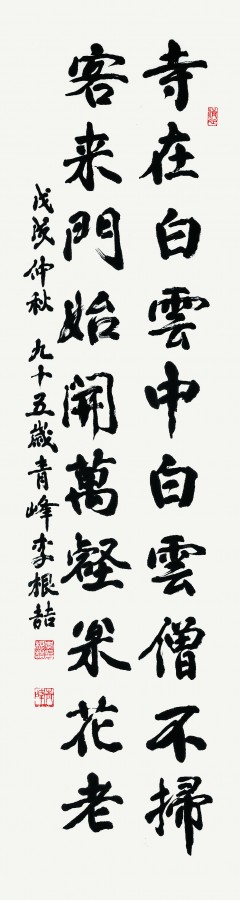 寺在白雲中白雲僧不掃
客来門始開萬壑枀花老
戊戌仲秋 九十五歲青峰李根喆